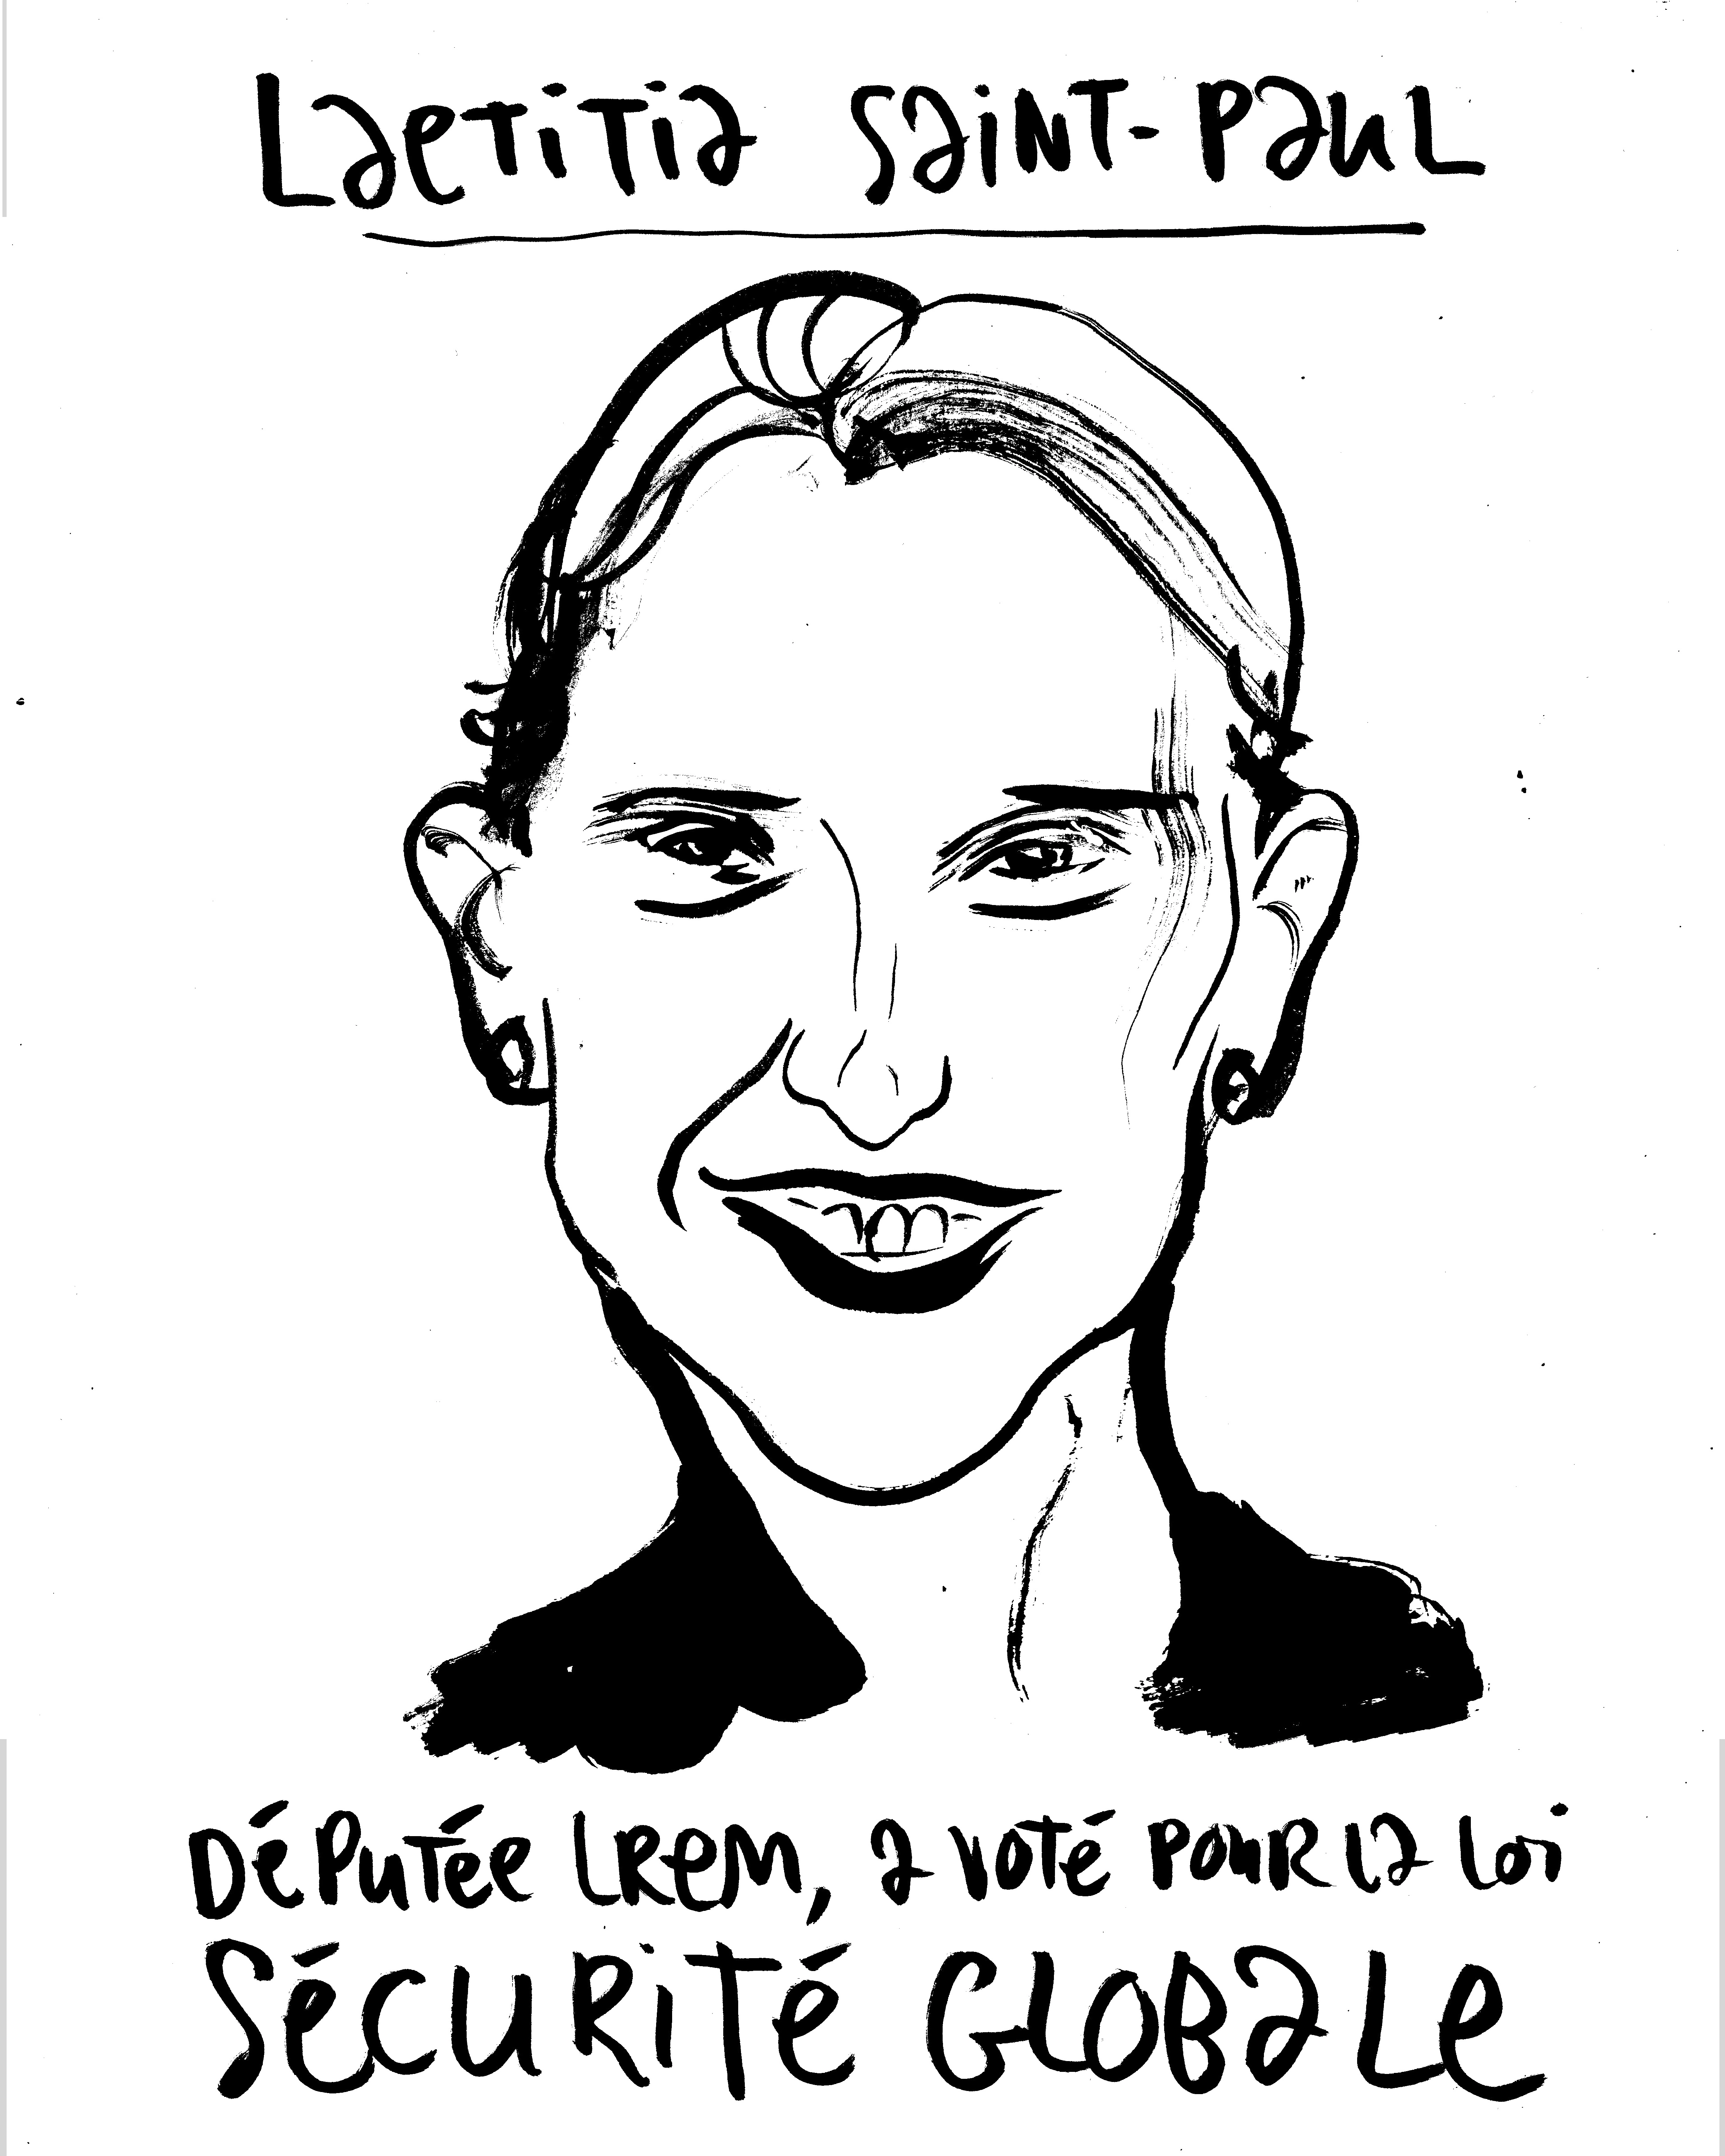 Laetitia Saint-Paul
Députée LREM, a voté pour la loi
Sécurité Globale